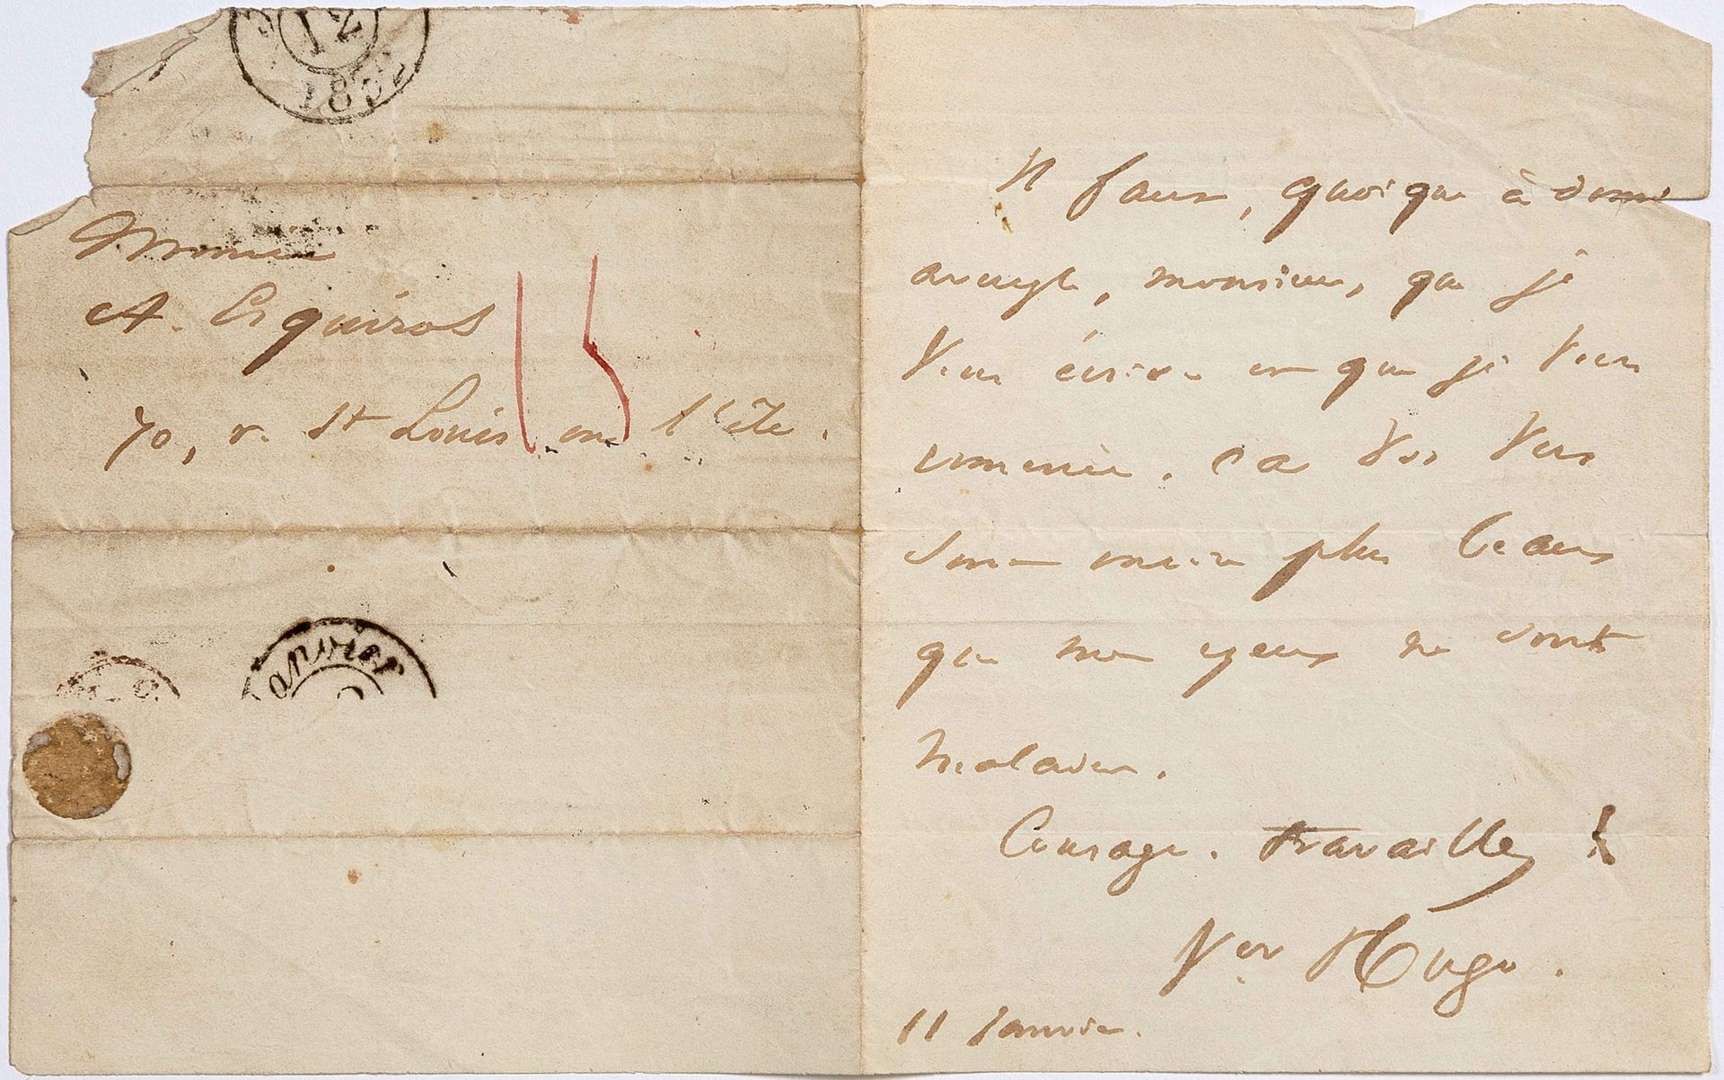 12
1832
Monsieur
A. Esquiros
15
70, r. St Louis en l'île.
Janvier
Il faut, quoique à demi
aveugle, monsieur, que je
vous écrive et que je vous
remercie. Car vos vers
sont encore plus beaux
que mes yeux ne sont
malades.
Courage. travaillez !
Vor Hugo.
11 Janvier.